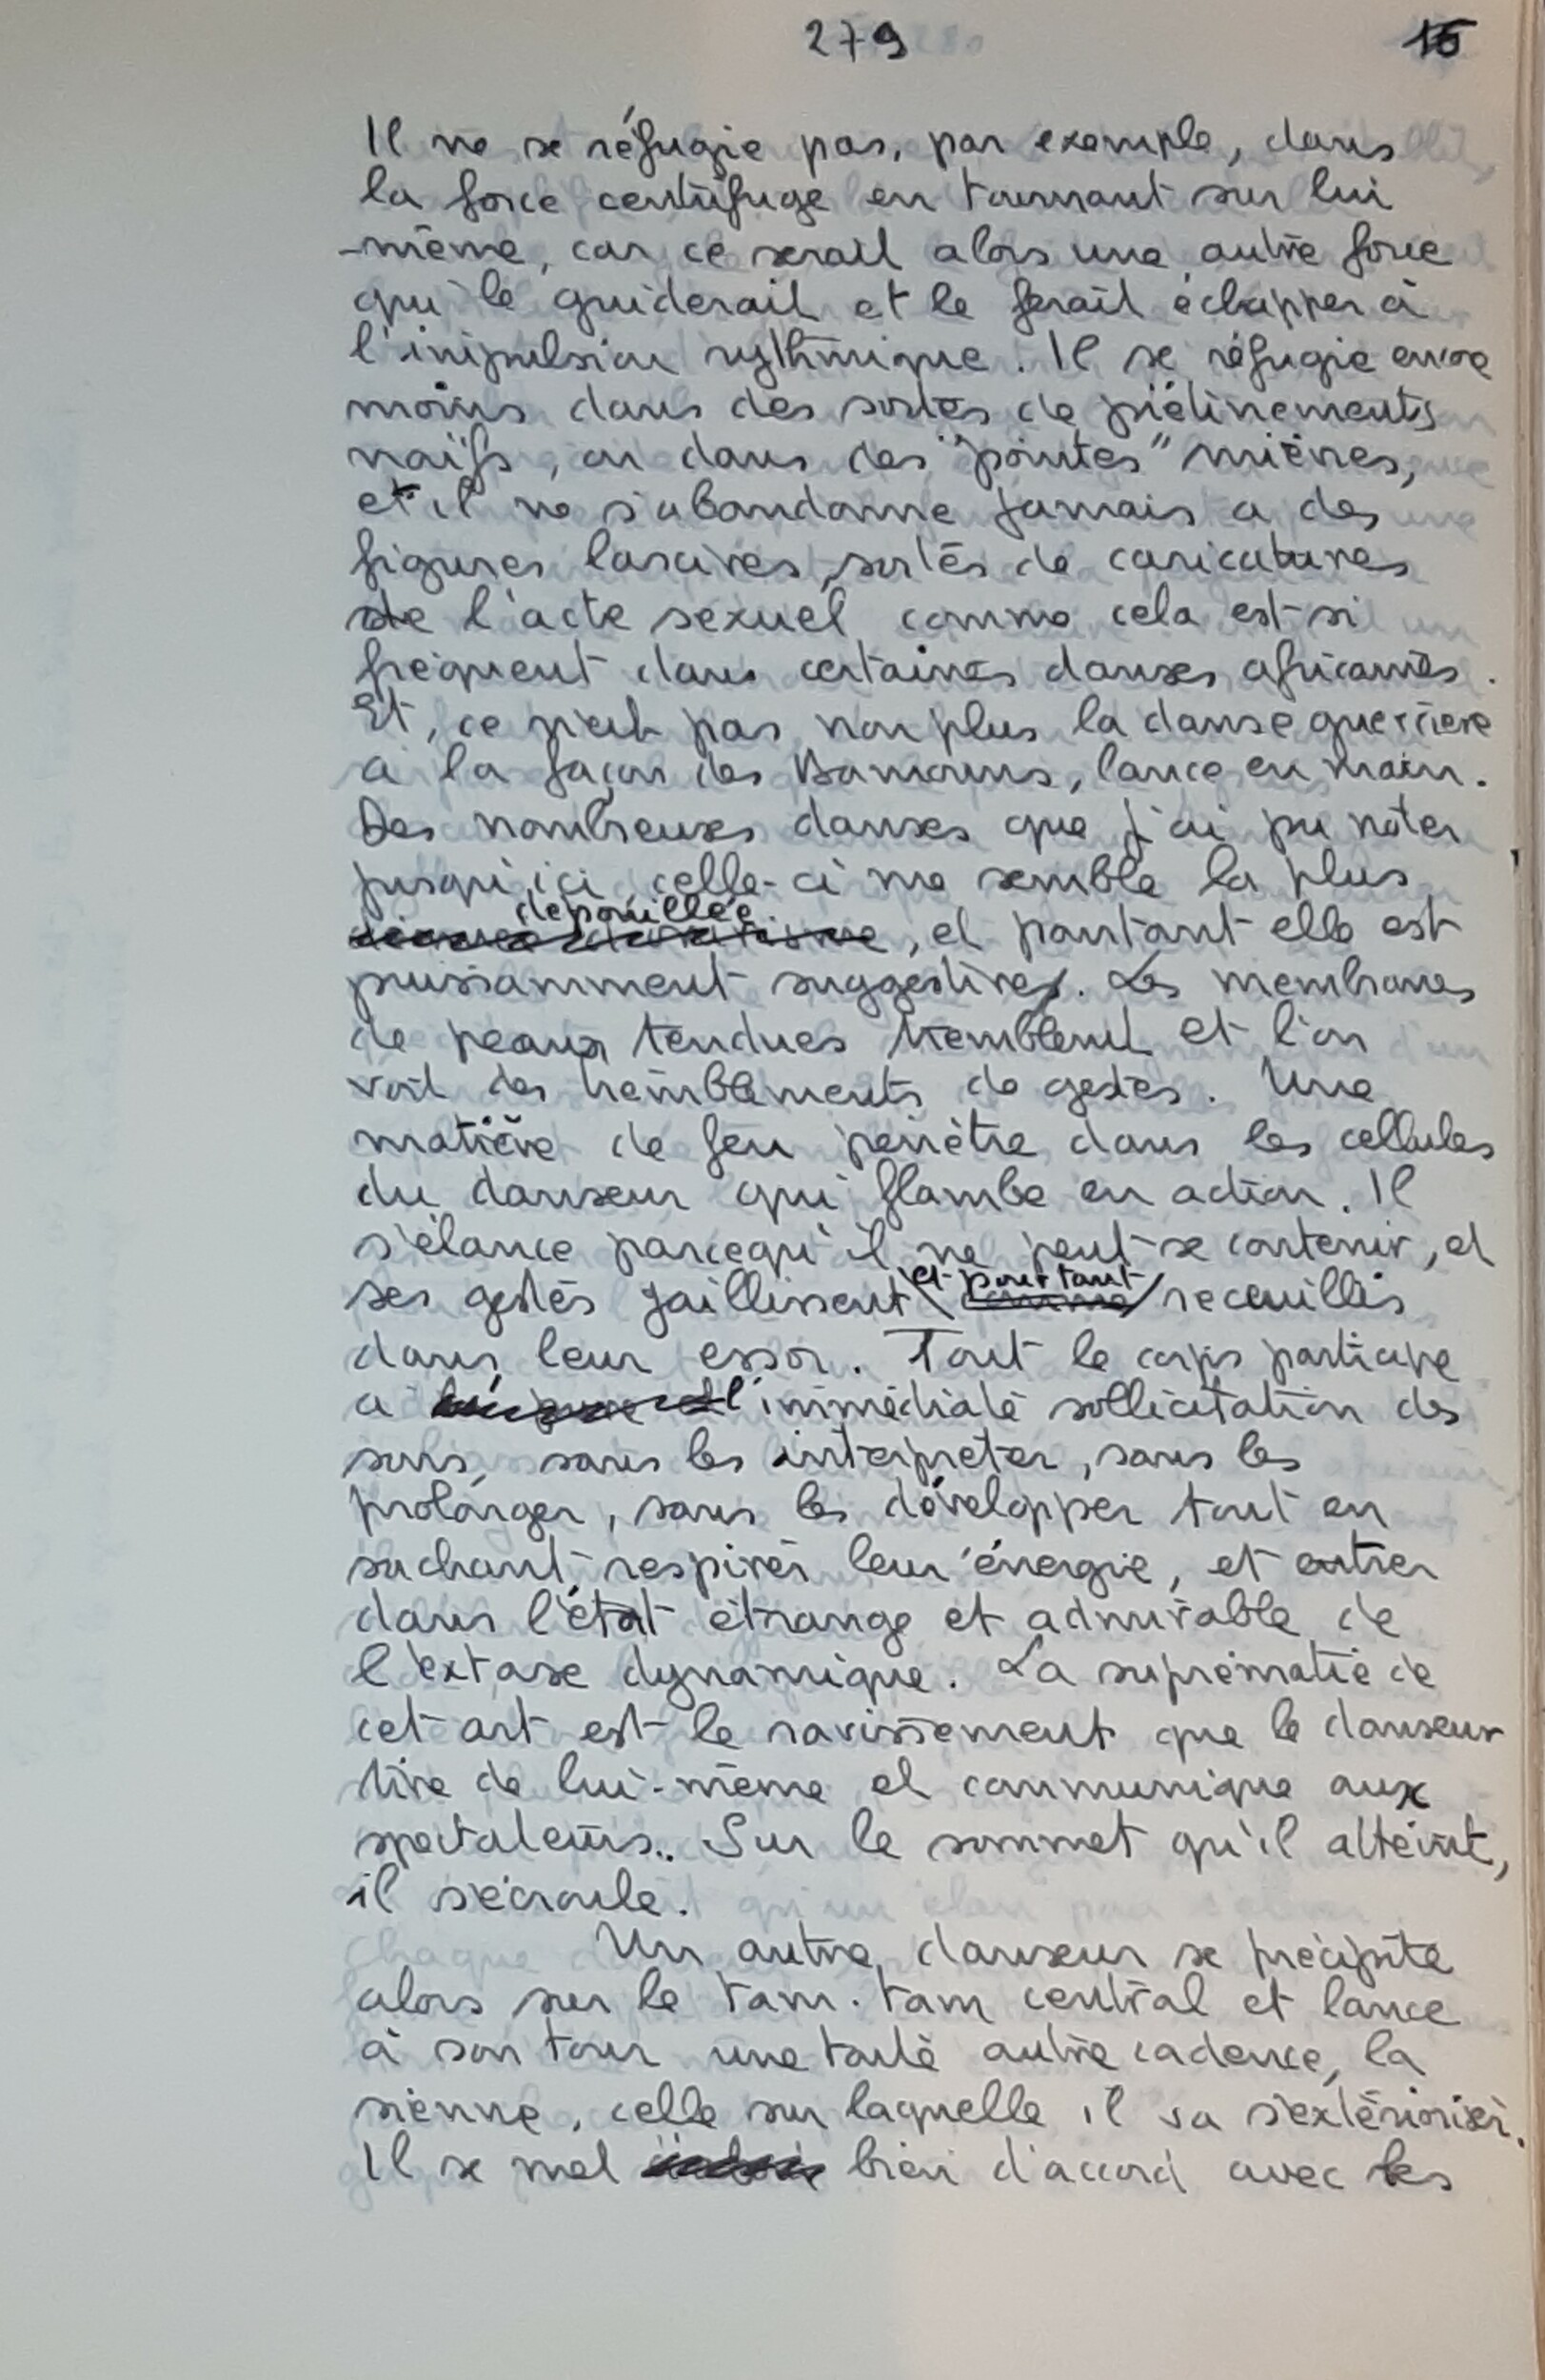 279 16
Il ne se réfugie pas, par exemple, dans
la force centrifuge en tournant sur lui
-même, car ce serait alors une autre force
qui le guiderait et le ferait échapper à
l'impulsion rythmique. Il se réfugie encore
moins dans des sortes de piétinements
naïfs, ou dans des "pointes" mièvres,
et il ne s'abandonne jamais a des
figures lascives, sortes de caricatures
de l'acte sexuel comme cela est si
fréquent dans certaines danses africaines.
Et, ce n'est pas non plus la danse guerrière
a la façon des Bamouns, lance en main.
Des nombreuses danses que j'ai pu noter
jusqu'ici celle-ci me semble la plus
dépouillée, et pourtant elle est
puissamment suggestive. Les membranes
de peaux tendues tremblent et l'on
voit des tremblements de gestes. Une
matière de feu pénètre dans les cellules
du danseur qui flambe en action. Il
s'élance parcequ'il ne peut se contenir, et
ses gestes jaillissent et pourtant recueillis
dans leur essor. Tout le corps participe
a l'immédiate sollicitation des
sons, sans les interpréter, sans les
prolonger, sans les développer tout en
sachant respirer leur énergie, et entrer
dans l'état étrange et admirable de
l'extase dynamique. La suprématie de
cet art est le ravissement que le danseur
tire de lui-même et communique aux
spectateurs.. Sur le sommet qu'il atteint,
il s'écroule.
Un autre danseur se précipite
alors sur le tam-tam central et lance
à son tour une toute autre cadence, la
sienne, celle sur laquelle il va s'extérioriser.
Il se met bien d'accord avec les